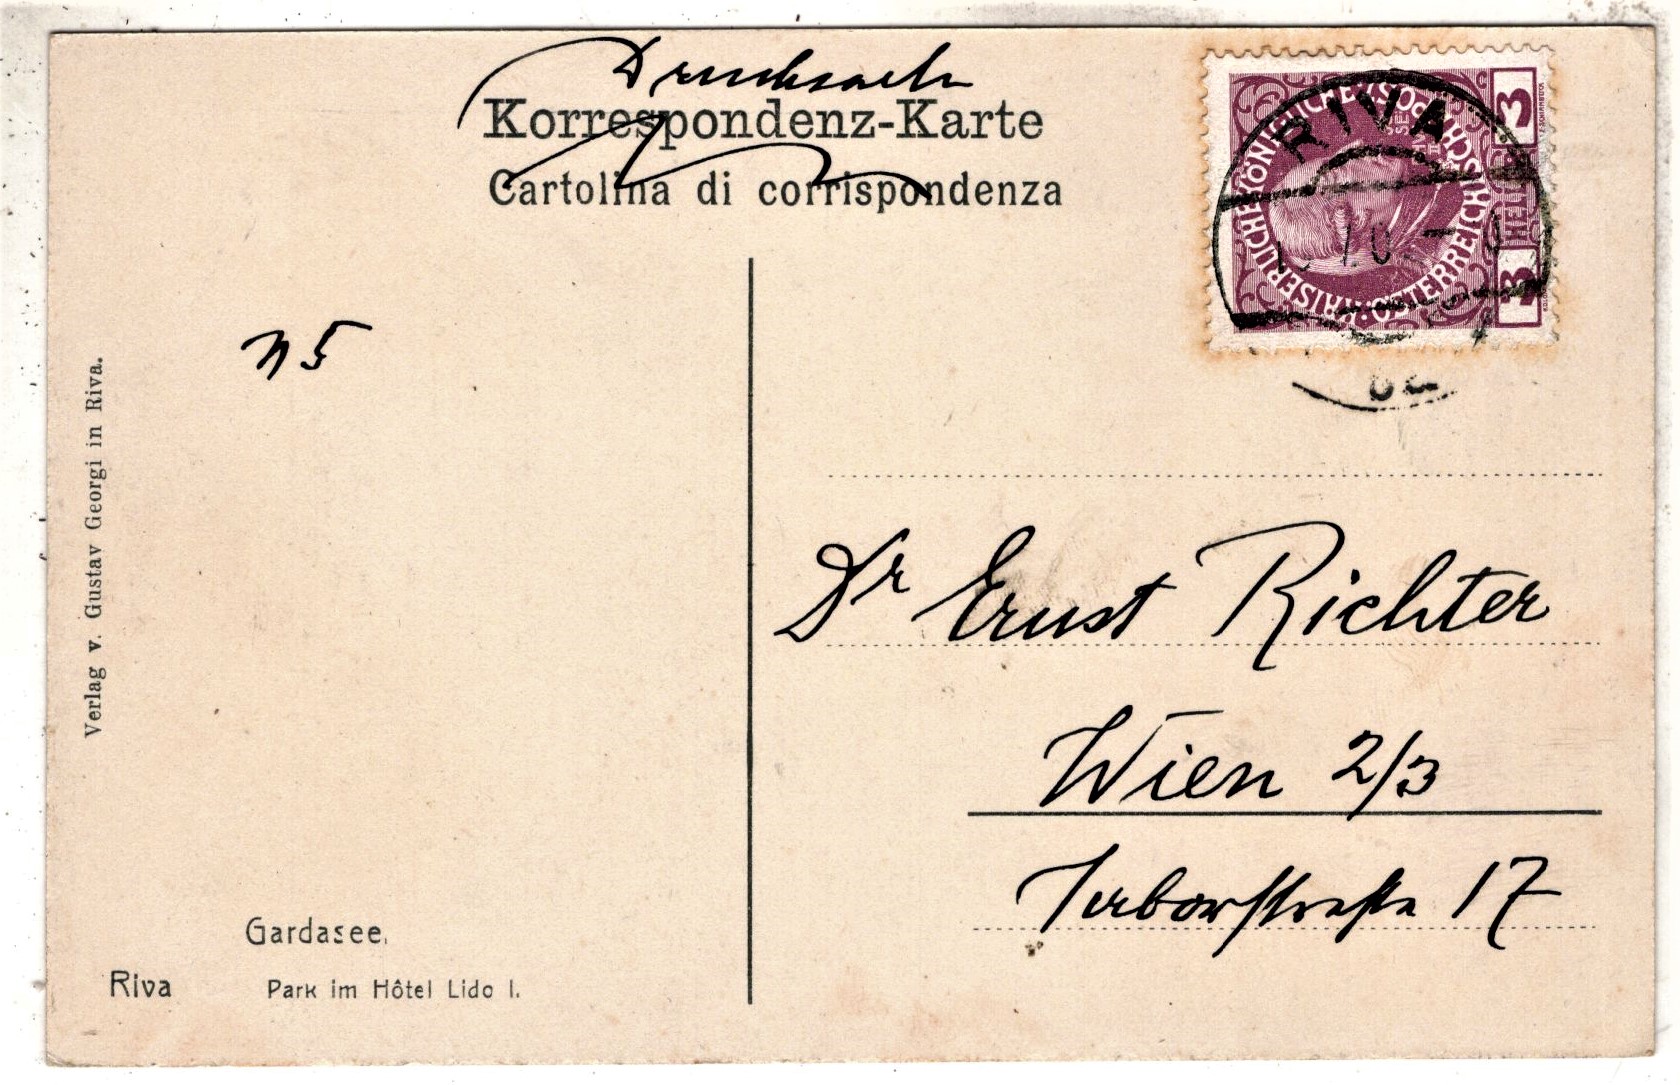 Drucksache
Korrespondenz-Karte
Cartolina di corrispondenza
KAISERLICHE KÖNIGLICHE ÖSTERREICHISCHE POST
3 HELLER 3
RIVA
N 5
Verlag v. Gustav Georgi in Riva.
Dr Ernst Richter
Wien 2/3
Taborstraße 17
Gardasee.
Riva Park im Hôtel Lido I.